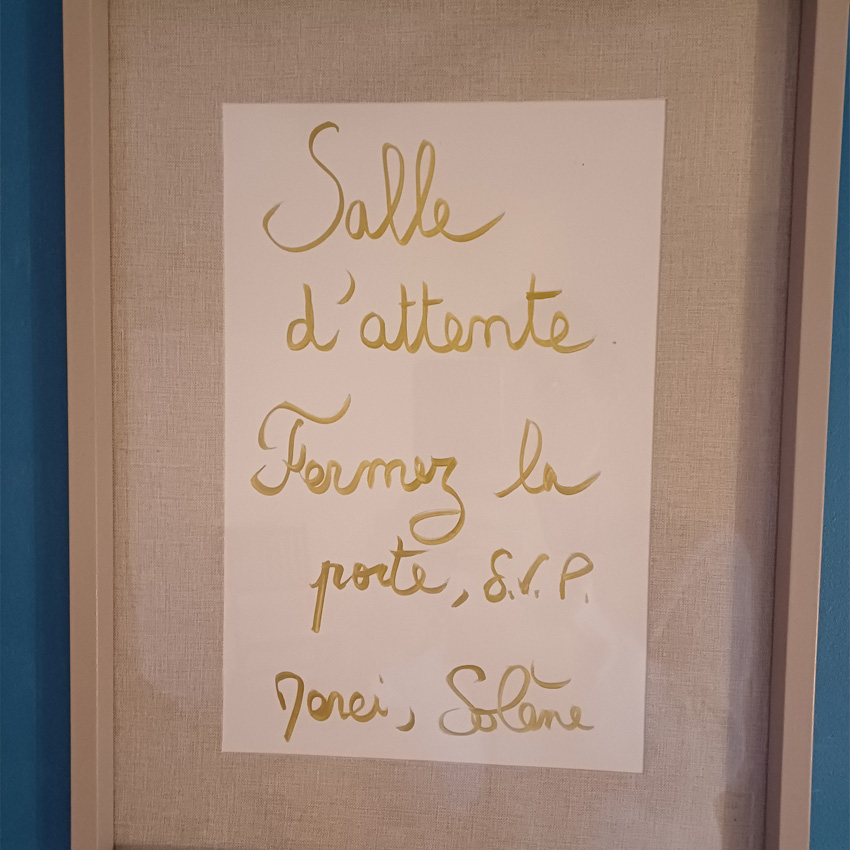 Salle
d'attente
Fermez la
porte, S.V.P.
Merci, Solène